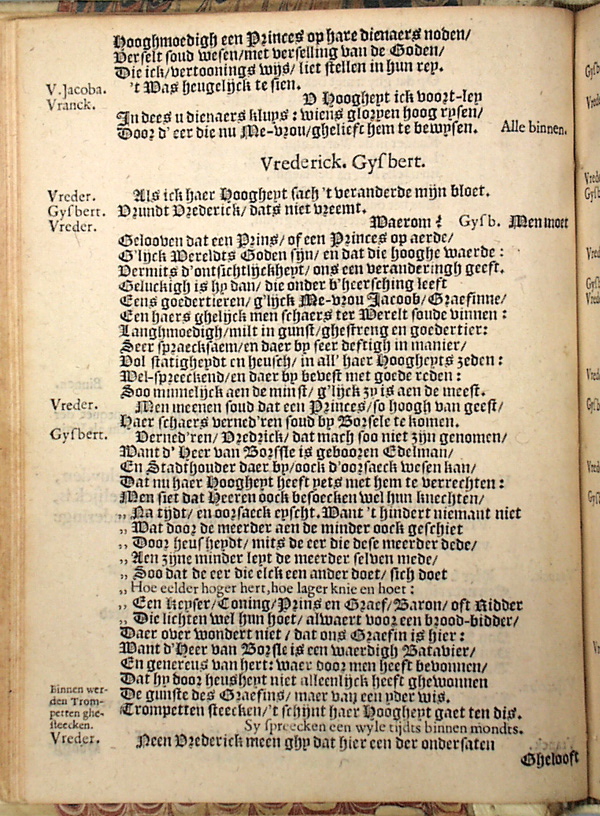 Hooghmoedigh een Princes op hare dienaers noden/
Verselt soud wesen/met verselling van de Goden/
Die ick/vertoonings wijs/ liet stellen in hun rey.
V.Jacoba. 't Was heugelijck te sien.
Vranck. O Hoogheyt ick voort-ley
In dees u dienaers kluys: wiens glorpen hoog rysen/
Door d'eer die nu Me-vrou/ghelieft hem te bewysen. Alle binnen.
Vrederick. Gysbert.
Vreder. Als ick haer Hoogheyt sach 't veranderde mijn bloet.
Gysbert. Vrundt Vrederick/dats niet vreemt.
Vreder. Waerom? Gysb. Men moet
Gelooven dat een Prins/of een Princes op aerde/
G'lijck Wereldts Goden sijn/en dat die hooghe waerde:
Vermits d'ontsichtlijckheyt/ons een veranderingh geeft.
Geluckigh is hy dan/die onder b'heersching leeft
Eens goedertieren/g'lijck Me-vrou Jacoob/Graefinne/
Een haers ghelijck men schaers ter Werelt soude vinnen:
Langhmoedigh/milt in gunst/ghestreng en goedertier:
Seer spraecksaem/en daer by seer deftigh in manier/
Vol statigheydt en heusch/in all' haer Hoogheyts zeden:
Wel-spreeckend/en daer by bevest met goede reden:
Soo minnelijck aen de minst/g'lijck zy is aen de meest.
Vreder. Men meenen soud dat een Princes/so hoogh van geest/
Haer schaers verned'ren soud by Borsele te komen.
Gysbert. Verned'ren/Vredrick/dat mach soo niet zijn genomen/
Want d'Heer van Borssle is gebooren Edelman/
En Stadthouder daer by/oock d'oorsaeck wesen kan/
Dat nu haer Hoogheyt heeft yets met hem te verrechten:
Men siet dat Heeren oock besoecken wel hun knechten/
,, Na tijdt/en oorsaeck eyscht. Want 't hindert niemant niet
,, Wat door de meerder aen de minder oock geschiet
,, Door heusheydt/mits de eer die dese meerder dede/
,, Aen zijne minder leyt de meerder selven mede/
,, Soo dat de eer die elck een ander doet/sich doet
,, Hoe eelder hoger hert, hoe lager knie en hoet:
,, Een Keyser/Coning/Prins en Graef/Baron/oft Ridder
,, Die lichten wel hun hoet/alwaert voor een brood-bidder/
Daer over wondert niet/dat ons Graefin is hier:
Want d'Heer van Borssle is een waerdigh Batavier/
En genereus van hert: waer door men heeft bevonnen/
Dat hy door heusheyt niet alleenlijck heeft ghewonnen
De gunste des Graefins/maer van een yder wis.
Binnen werden Trompetten ghesteecken. Trompetten steecken/'t schijnt haer Hoogheyt gaet ten dis.
Sy spreecken een wyle tijdts binnen mondts.
Vreder. Neen Vrederick meen ghy dat hier een der ondersaten
Ghelooft